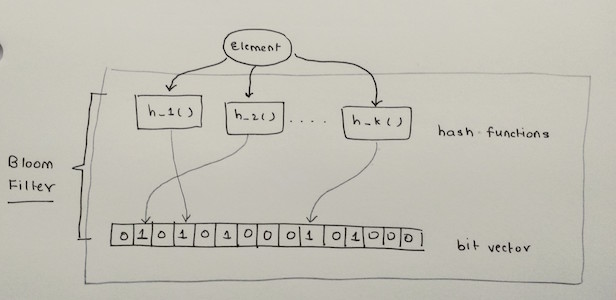 Element
h_1()
h_2()
....
h_k()
hash functions
Bloom
Filter
0 1 0 1 0 1 0 0 0 1 0 1 0 0 0
bit vector